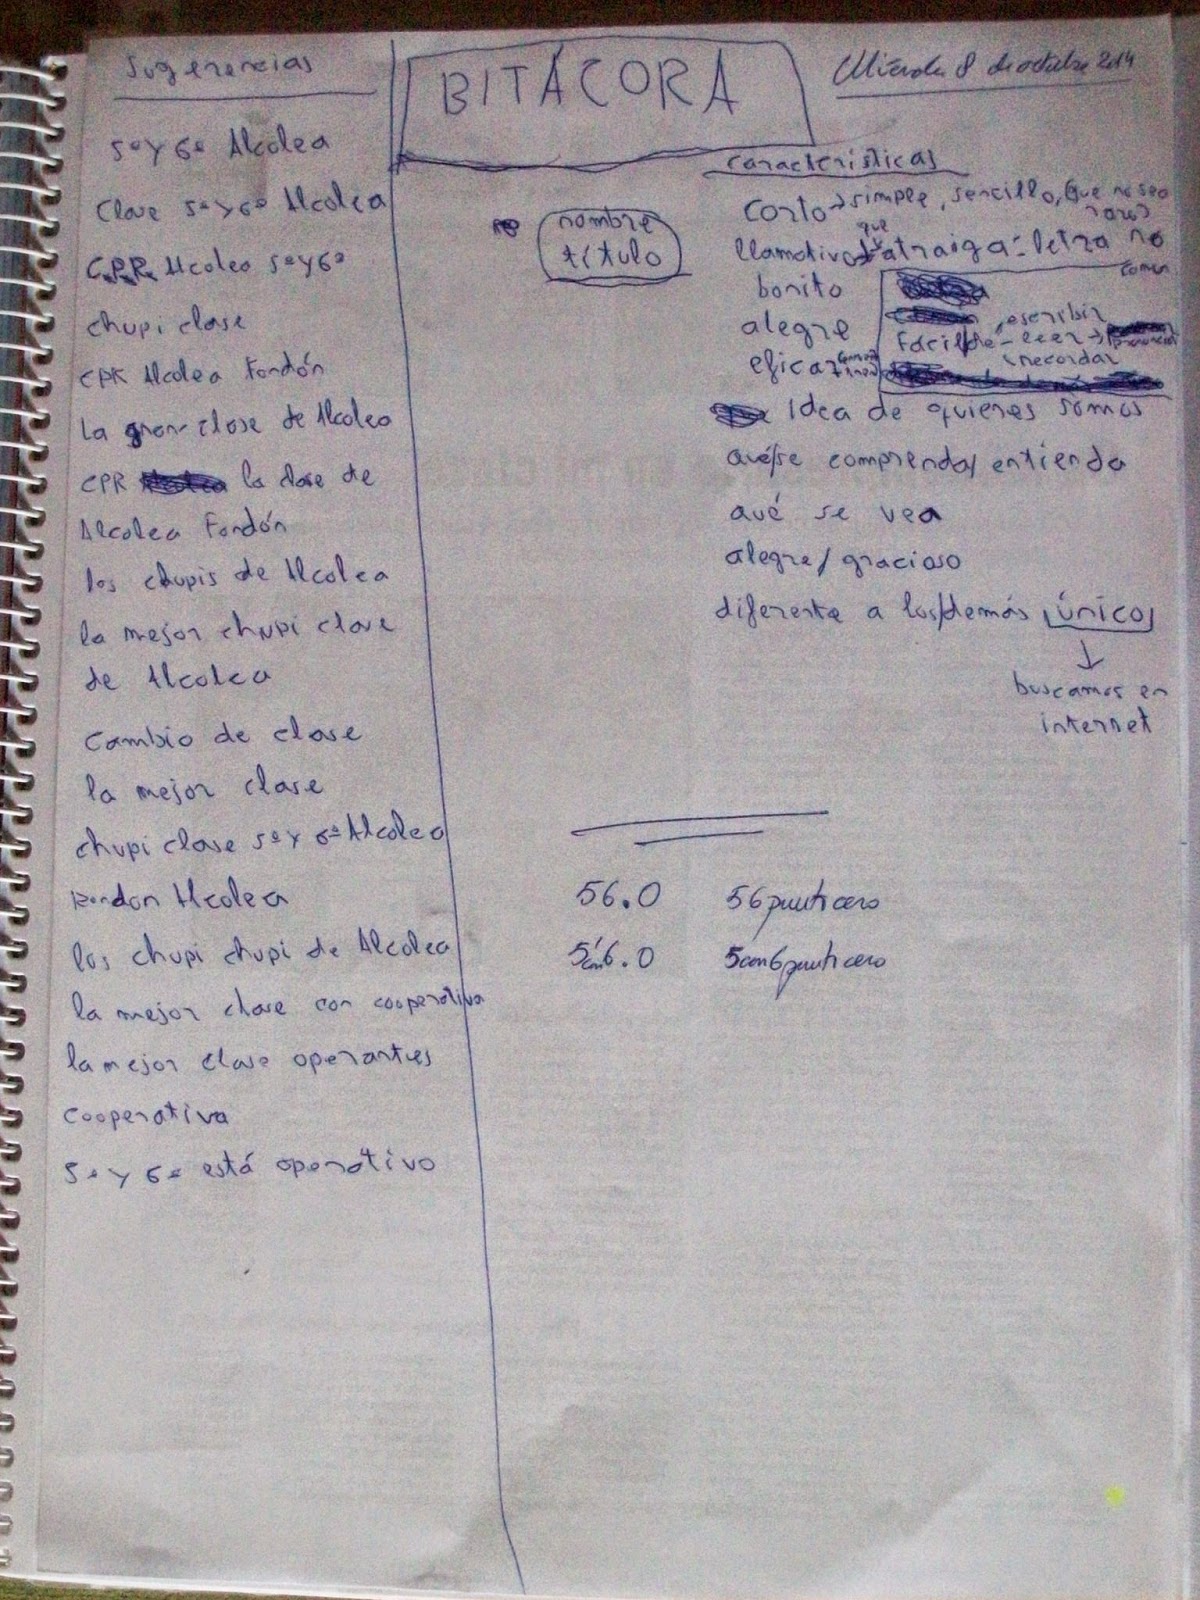 Sugerencias
5º y 6º Alcolea
Clase 5º y 6º Alcolea
C.P.R. Alcolea 5º y 6º
chupi clase
CPR Alcolea Fondón
La gran clase de Alcolea
CPR la clase de
Alcolea Fondón
los chupis de Alcolea
la mejor chupi clase
de Alcolea
Cambio de clase
la mejor clase
chupi clase 5º y 6º Alcolea
Alcolea
los chupi chupi de Alcolea
la mejor clase con cooperativa
la mejor clase
cooperativa
5º y 6º está operativo
BITÁCORA
nombre
título
8 de octubre 2014
Características
Corto → simple, sencillo, que no sea
raro
que
llamativo → atraiga = letra no
comun
bonito
alegre
eficaz
escribir
Facil de - leer →
recordar
Idea de quienes somos
qué/se comprenda/entienda
qué se vea
alegre/gracioso
diferente a los/demás único
buscamos en
internet
56.0 56punticero
5con6.0 5con6punticero